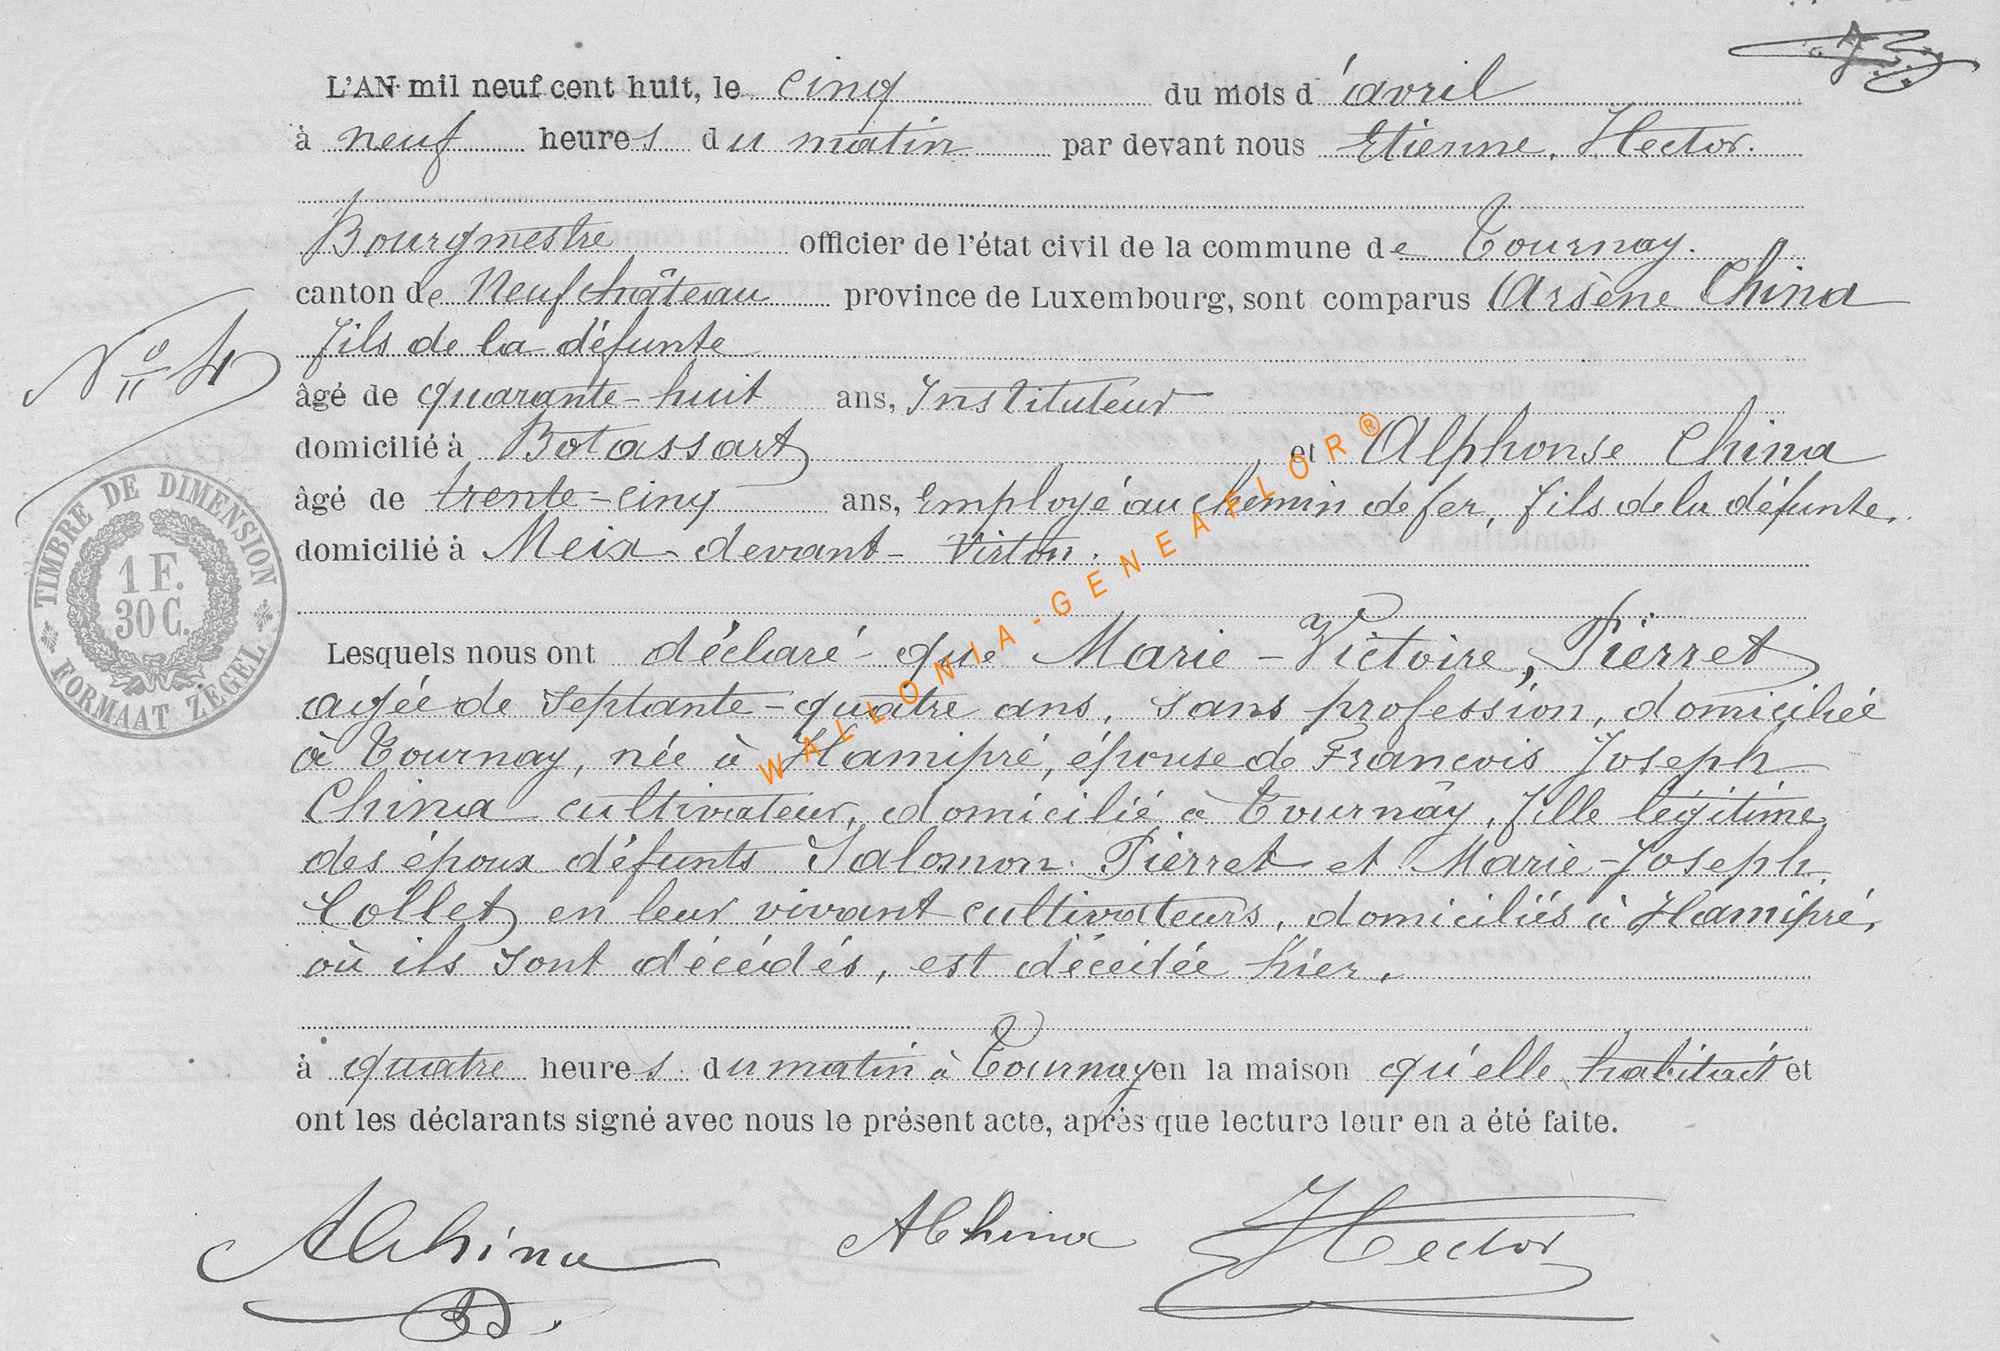 L'AN mil neuf cent huit, le cinq du mois d'avril
à neuf heures du matin par devant nous Etienne, Hector.
Bourgmestre officier de l'état civil de la commune de Tournay.
canton de Neufchâteau province de Luxembourg, sont comparus Arsène China
fils de la défunte
N° 4
âgé de quarante-huit ans, Instituteur
domicilié à Botassart et Alphonse China
âgé de trente-cinq ans, Employé au chemin de fer, fils de la défunte,
domicilié à Meix-devant-Virton.
TIMBRE DE DIMENSION
1 F.
30 C.
FORMAAT ZEGEL
WALLONIA-GENEAFLOR®
Lesquels nous ont déclaré que Marie-Victoire, Pierret
agée de septante-quatre ans, sans profession, domiciliée
à Tournay, née à Hamipré, épouse de François Joseph
China cultivateur, domicilié à Tournay, fille légitime
des époux défunts Salomon Pierret et Marie-Joseph
Collet en leur vivant cultivateurs, domiciliés à Hamipré,
où ils sont décédés, est décédée hier,
à quatre heures du matin à Tournay en la maison qu'elle habitait et
ont les déclarants signé avec nous le présent acte, après que lecture leur en a été faite.
AChina AChina Hector